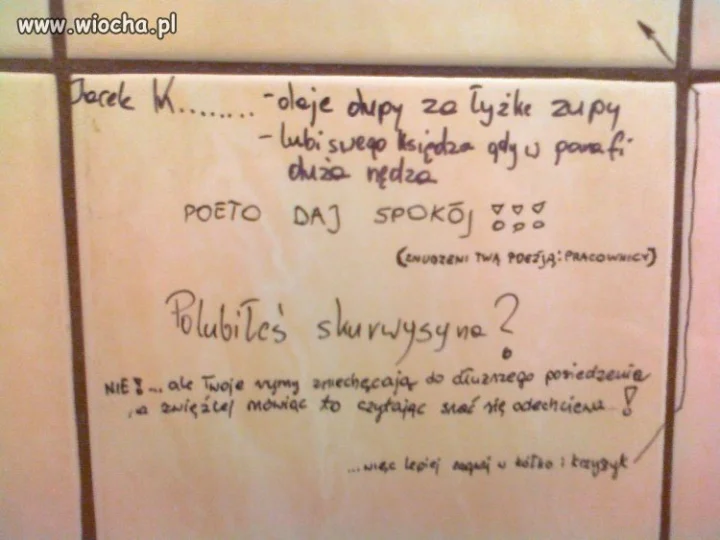 www.wiocha.pl
Jacek K........ - daje dupy za łyżkę zupy
- lubi swego księdza gdy w parafi
duża nędza
POETO DAJ SPOKÓJ !!!
(ZNUDZENI TWĄ POEZJĄ: PRACOWNICY)
Polubiłeś skurwysyna?
NIE! ... ale Twoje rymy zniechęcają do dłuższego posiedzenia
, a zwięźlej mówiąc to czytając srać się odechciewa...!
...więc lepiej zagraj w kółko i krzyżyk